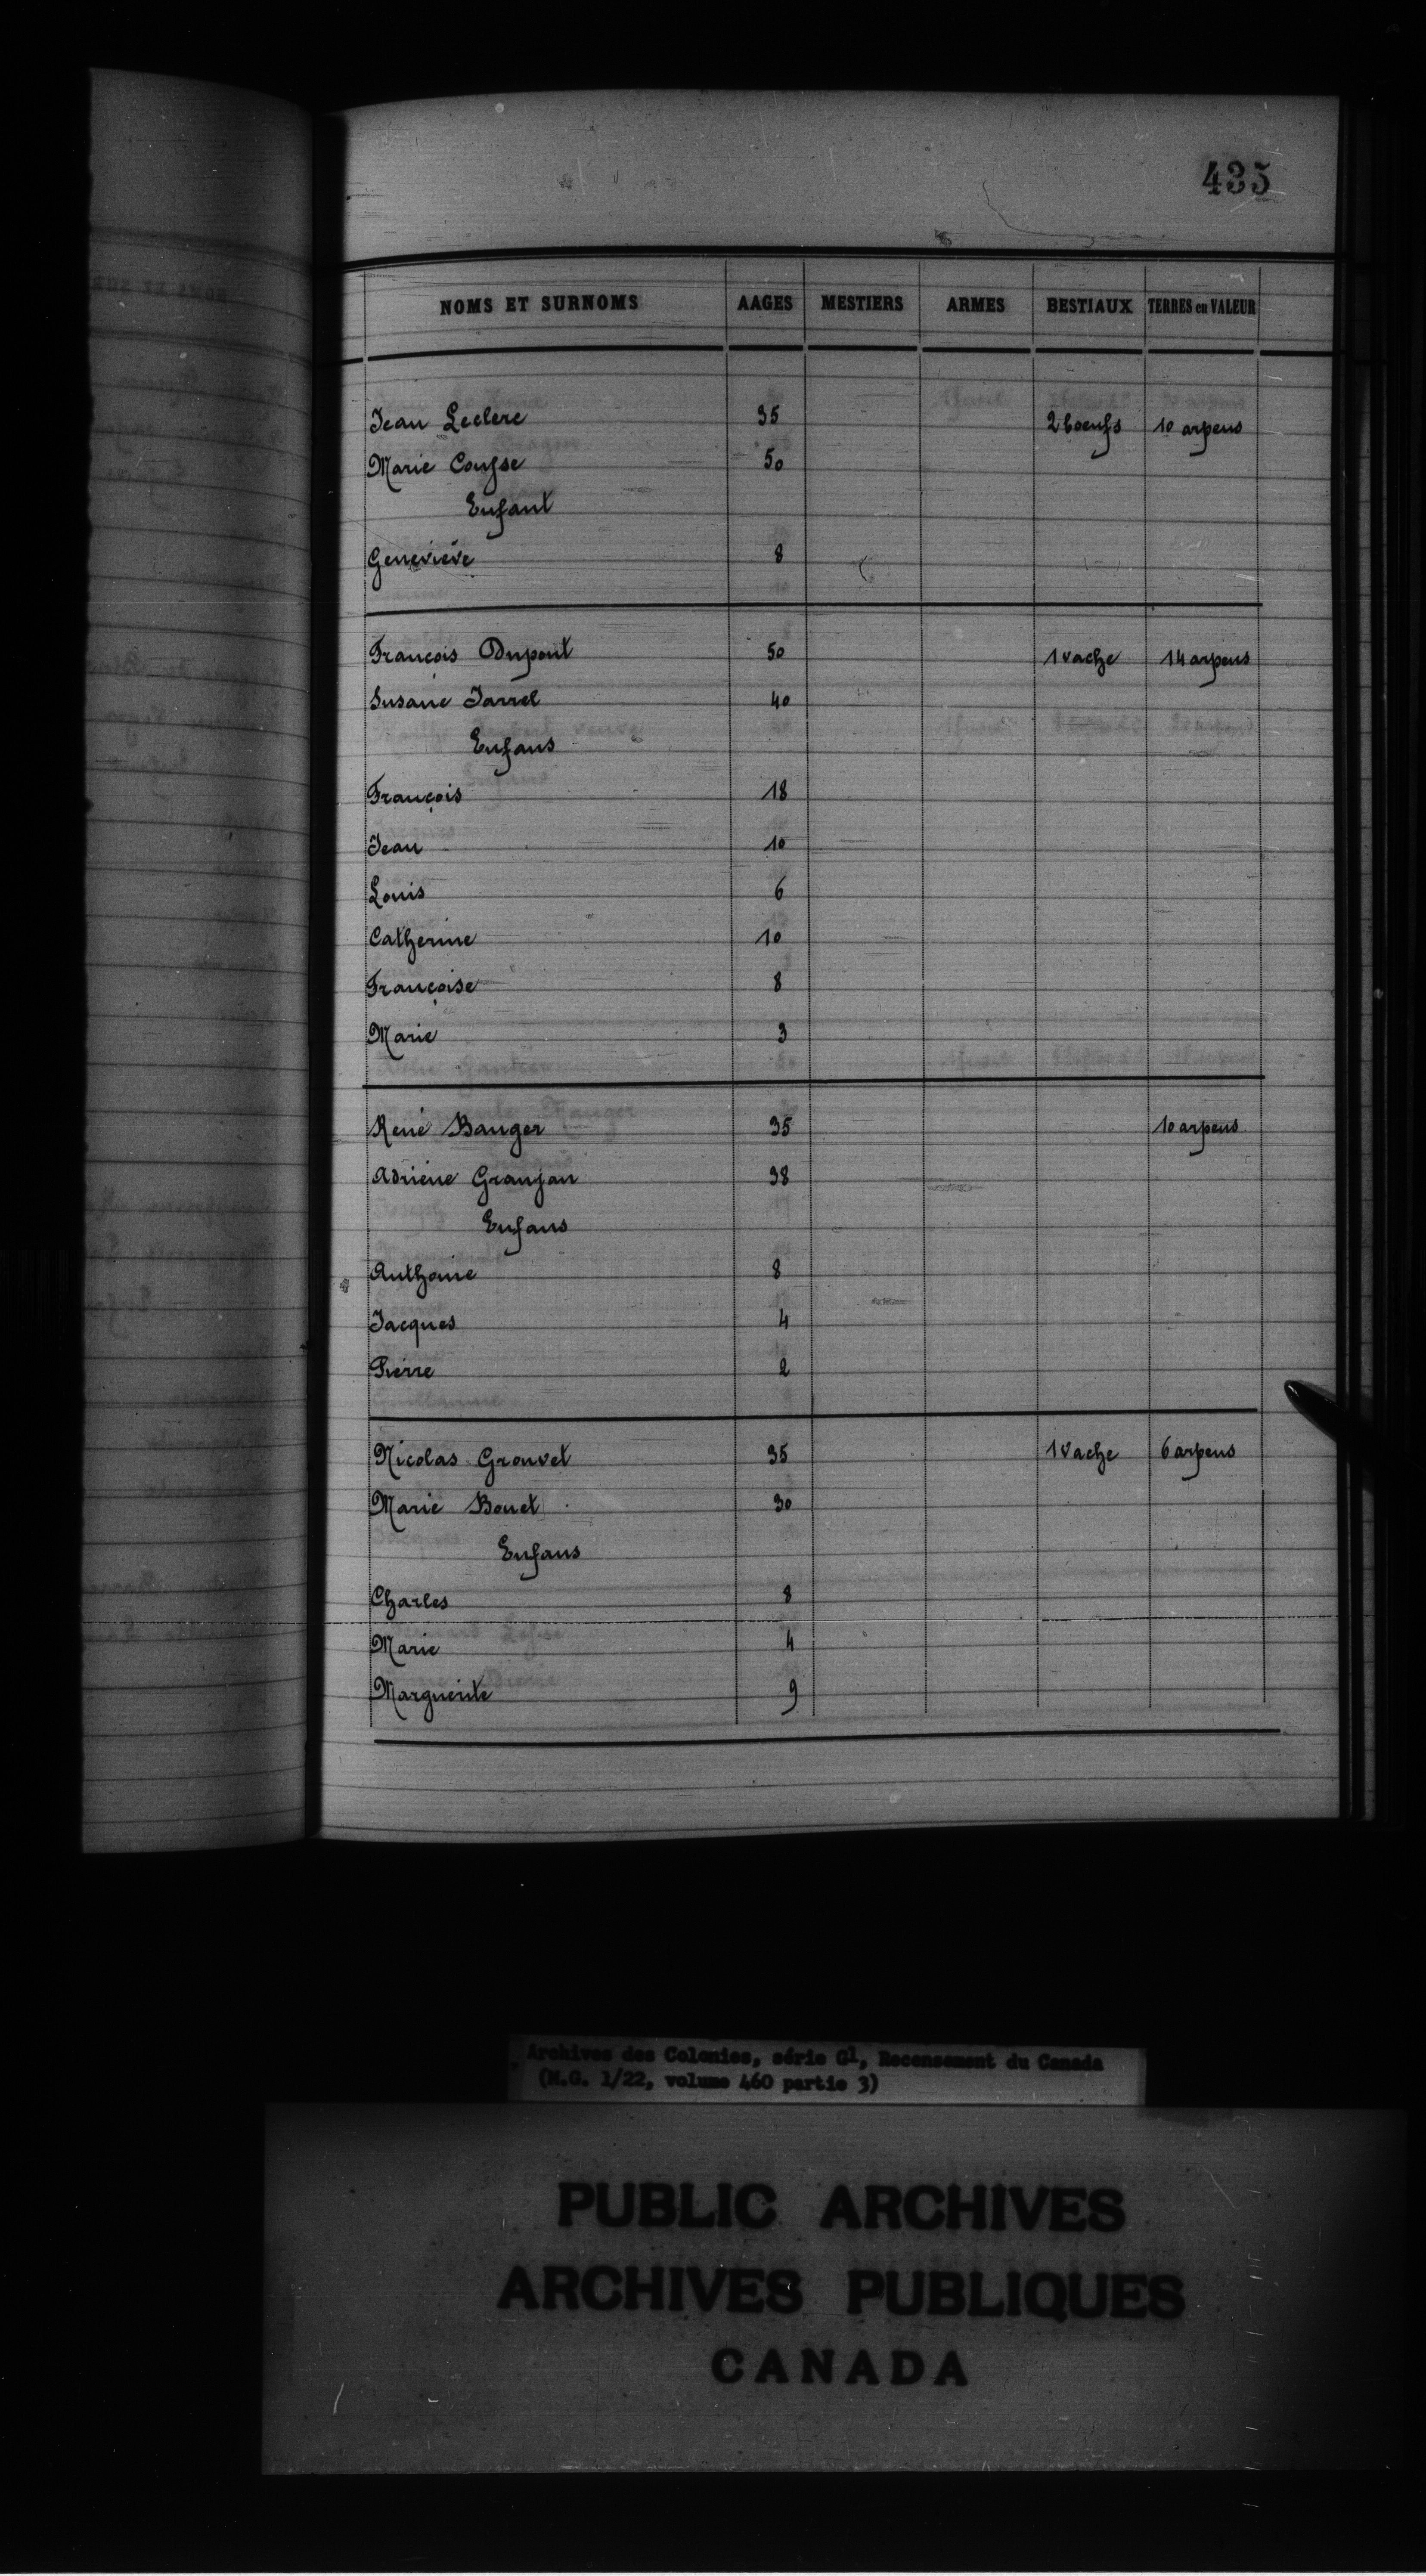 435
NOMS ET SURNOMS AAGES MESTIERS ARMES BESTIAUX TERRES en VALEUR
Jean Leclerc 35 2 boeufs 10 arpens
Marie Couſse 50
Enfant
Geneviève 8
François Dupont 50 1 vache 14 arpens
Susane Jarrel 40
Enfans
François 18
Jean 10
Louis 6
Catherine 10
Françoise 8
Marie 3
René Bauger 35 10 arpens
Adriene Granjan 38
Enfans
Anthoine 8
Jacques 4
Pierre 2
Nicolas Grouvet 35 1 Vache 6 arpens
Marie Bouet 30
Enfans
Charles 8
Marie 4
Marguerite 9
Archives des Colonies, série G1, Recensement du Canada
(M.G. 1/22, volume 460 partie 3)
PUBLIC ARCHIVES
ARCHIVES PUBLIQUES
CANADA